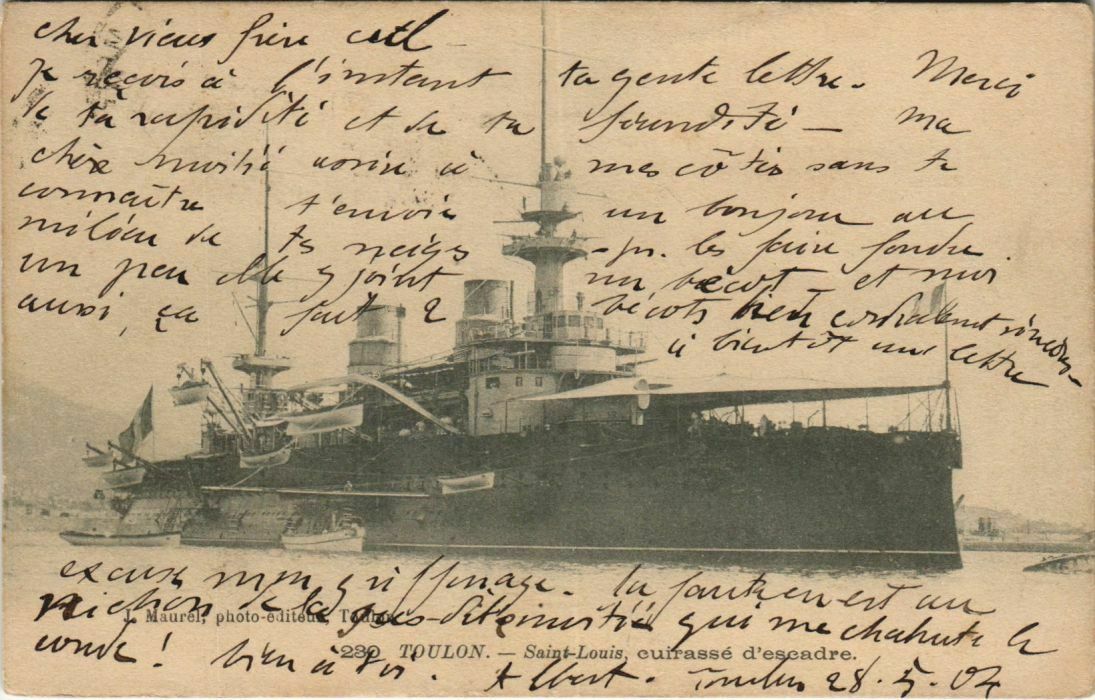 cher vieux frère
Je reçois à l'instant ta gente lettre. Merci
de ta rapidité et de ta — Ma
chère moitié assise à mes côtés sans te
connaître t'envoie un bonjour au
milieu de tes neiges pr. les faire fondre
un peu elle y joint un bécot et moi
aussi, ça fait 2 bécots bien cordialement
à bientôt une lettre
excuse mon griffonage. la faute en est au
nichon de la moitié qui me chahute le
coude ! bien à toi. Albert. Toulon 28.5.04
J. Maurel, photo-éditeur, Toulon
230 TOULON. — Saint-Louis, cuirassé d'escadre.